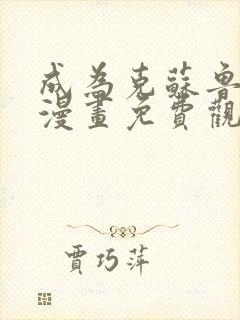 成為克蘇魯
漫畫免費觀
賈巧萍